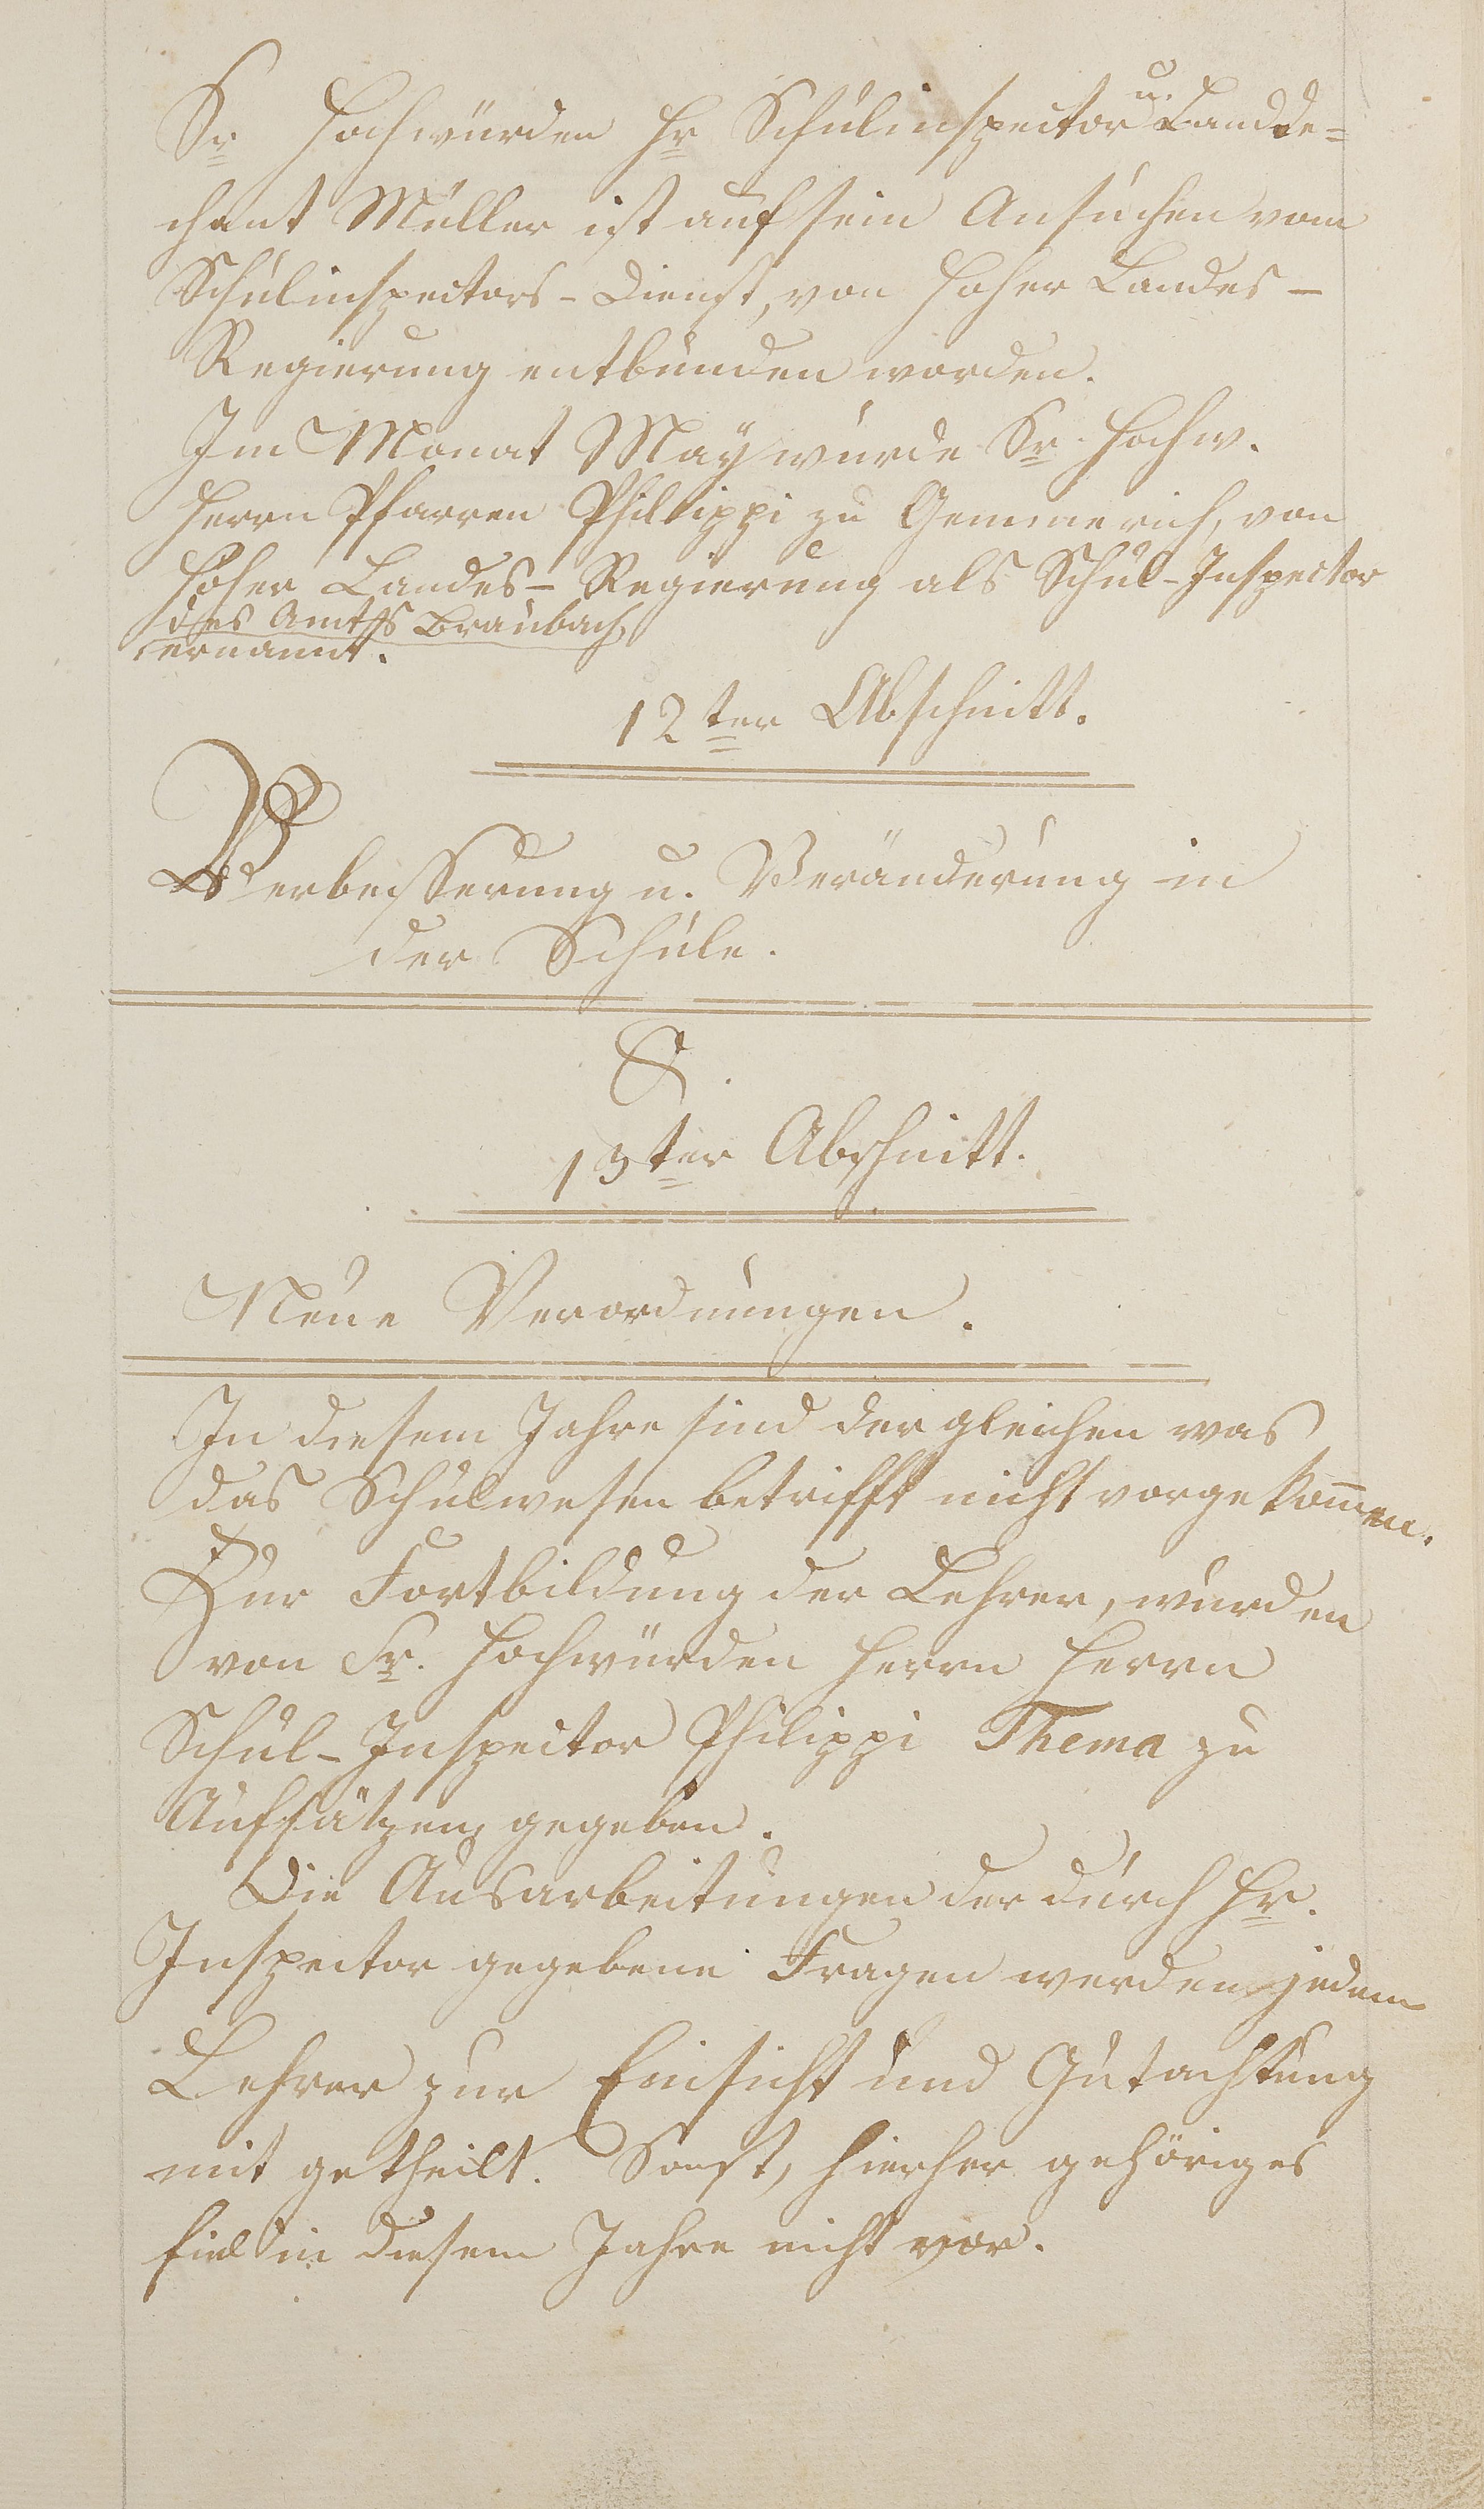 Sr Hochwürden Hr Schulinspector u. Landde=
chant Müller ist auf sein Ansuchen vom
Schulinspectors-Dienst, von hoher Landes-
Regierung entbunden worden.
Im Monat May wurde Sr. Hochw.
Herrn Pfarren Philippi zu Gemmerich, von
hoher Landes-Regierung als Schul-Inspector
des Amts Braubach
ernannt.
12ter Abschnitt.
Verbesserung u. Veränderung in
der Schule.
13ter Abschnitt.
Neue Verordnungen.
In diesem Jahre sind der gleichen was
das Schulwesen betrifft nicht vorgekom̄en.
Zur Fortbildung der Lehrer, wurden
von Sr. Hochwürden Herrn Herrn
Schul-Inspector Philippi Thema zu
Aufsätzen gegeben.
Die Ausarbeitungen der durch Hr.
Inspector gegebene Fragen werden jedem
Lehrer zur Einsicht und Gutachtung
mit getheilt. Sonst, hierher gehöriges
fiel in diesem Jahre nicht vor.